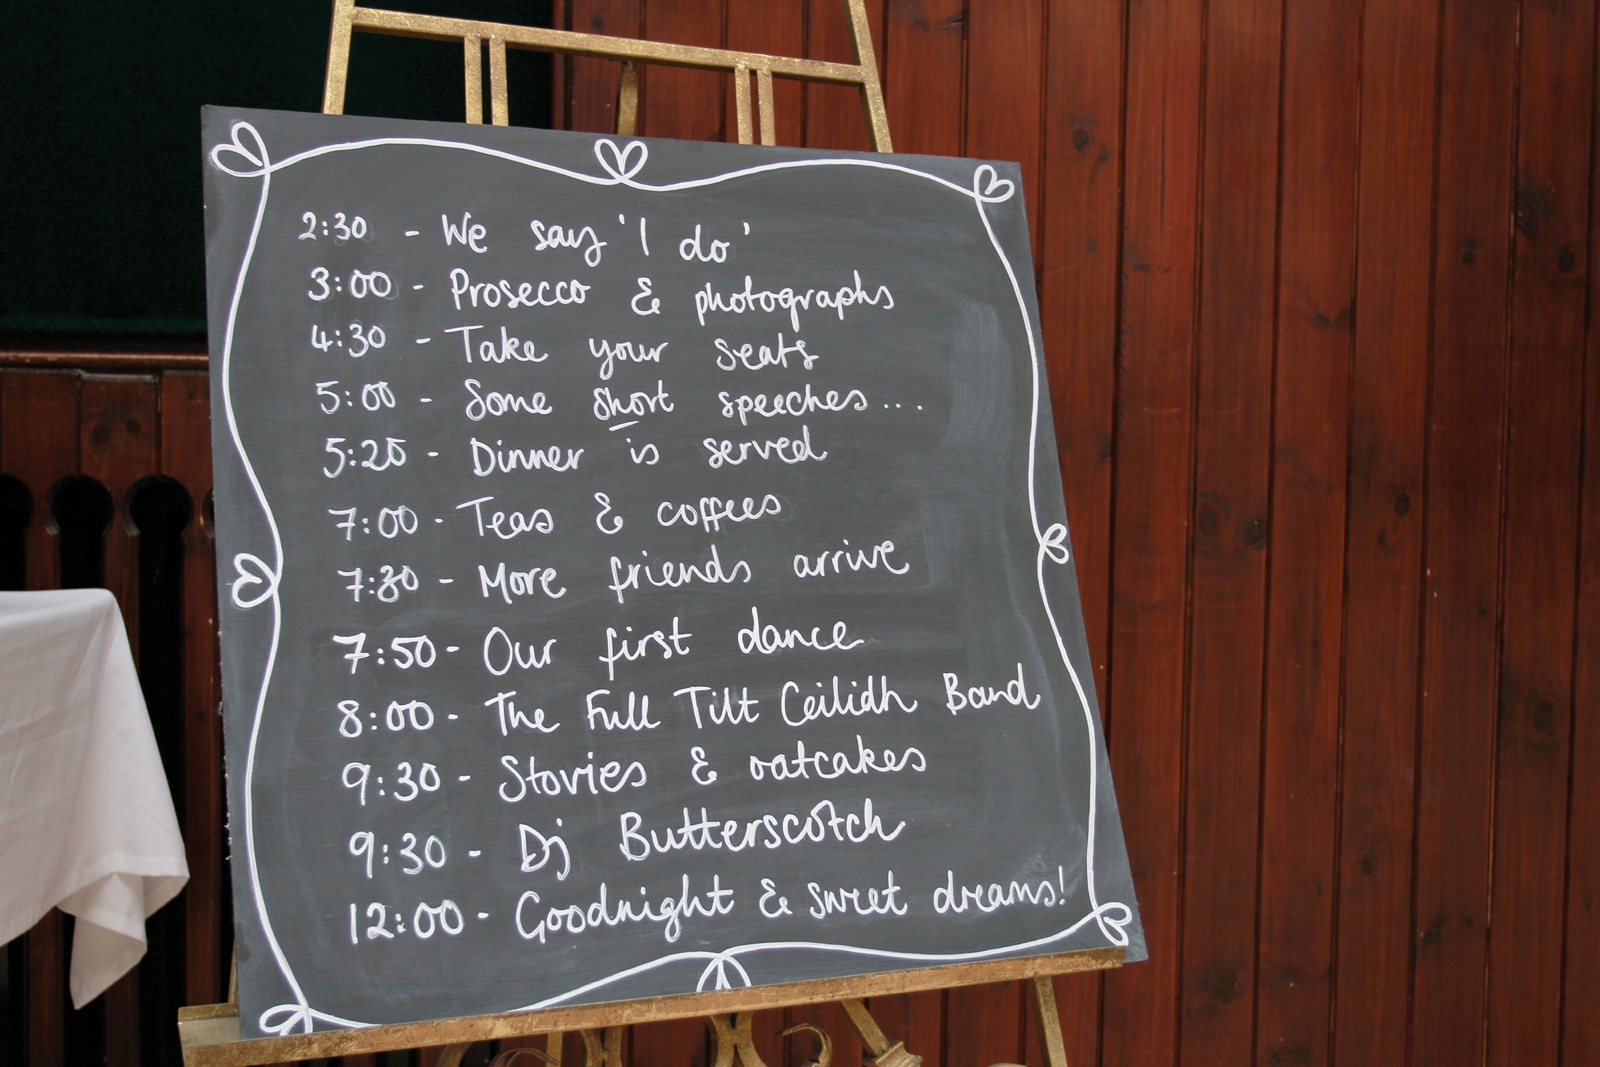 2:30 - We say 'I do'
3:00 - Prosecco & photographs
4:30 - Take your seats
5:00 - Some short speeches...
5:20 - Dinner is served
7:00 - Teas & coffees
7:30 - More friends arrive
7:50 - Our first dance
8:00 - The Full Tilt Ceilidh Band
9:30 - Stovies & oatcakes
9:30 - Dj Butterscotch
12:00 - Goodnight & sweet dreams!